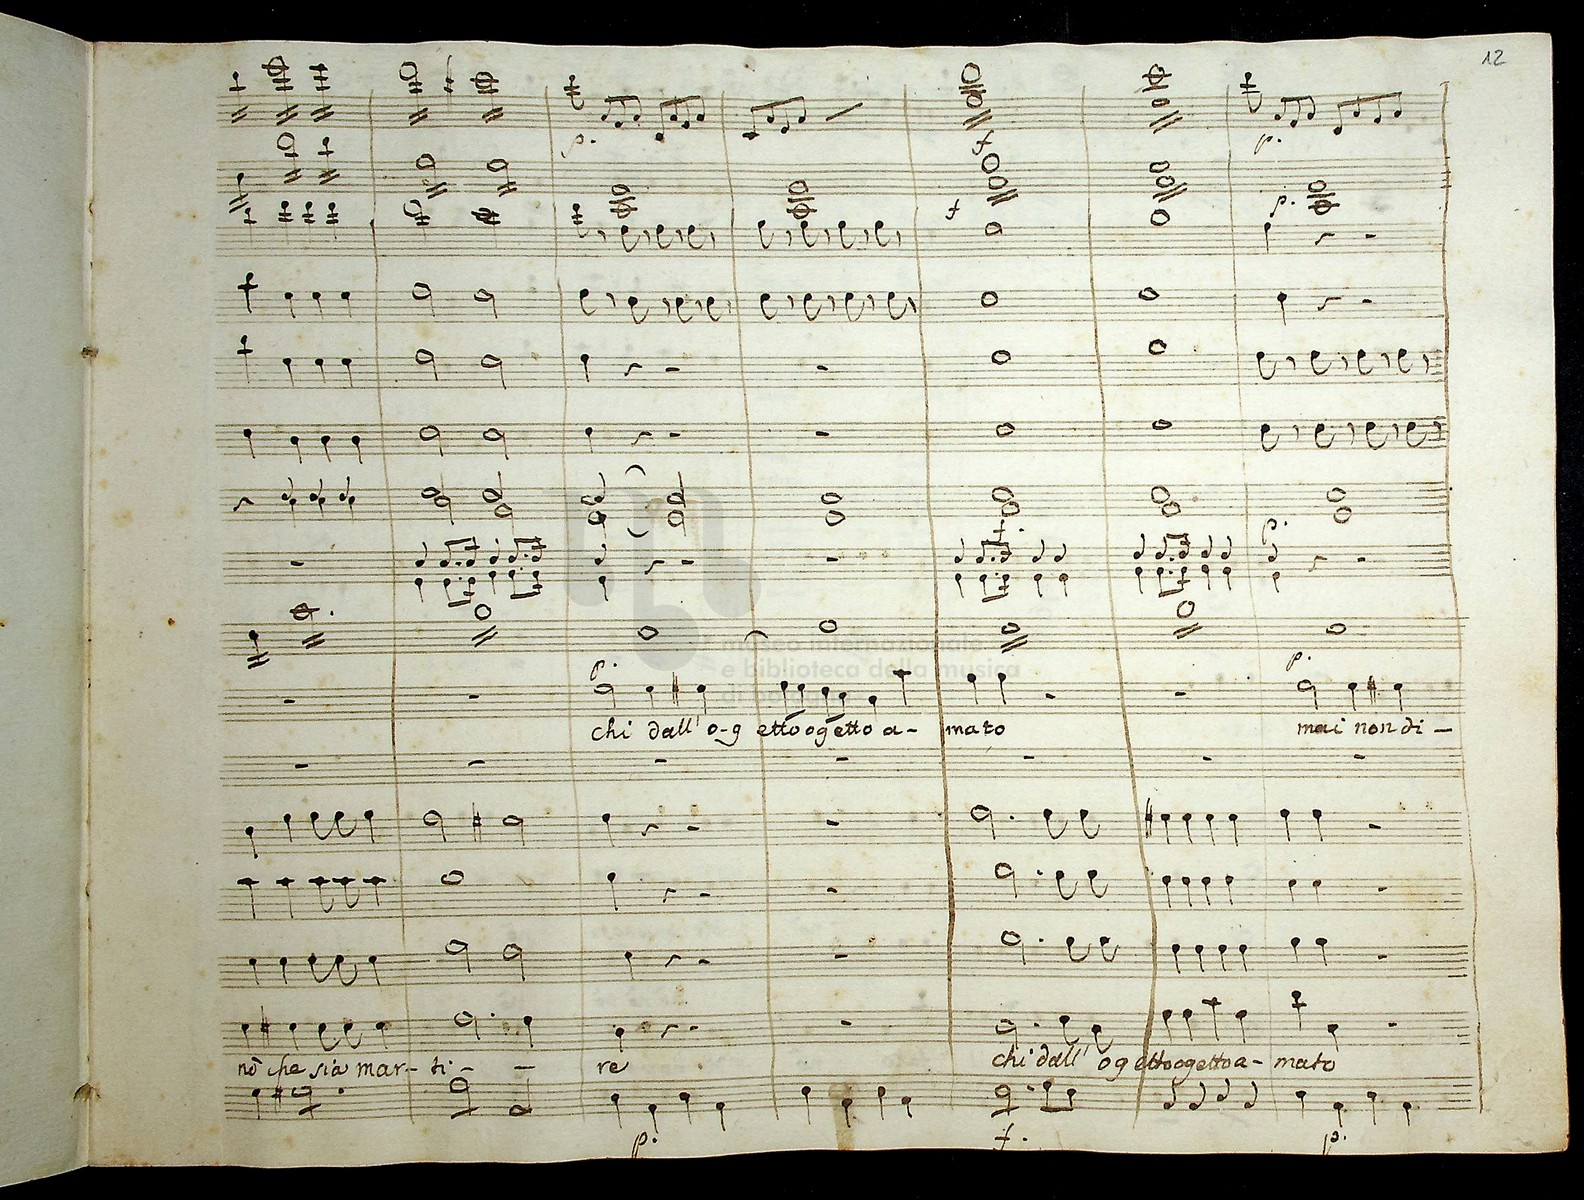 12
p.
f
p.
f
p.
f.
p.
museo internazionale
e biblioteca della musica
di bologna
p.
p.
chi dall' o-g etto ogetto a- mato mai non di-
nò che sia mar- ti- - re chi dall' og ettoogettoa- mato
p. f. p.